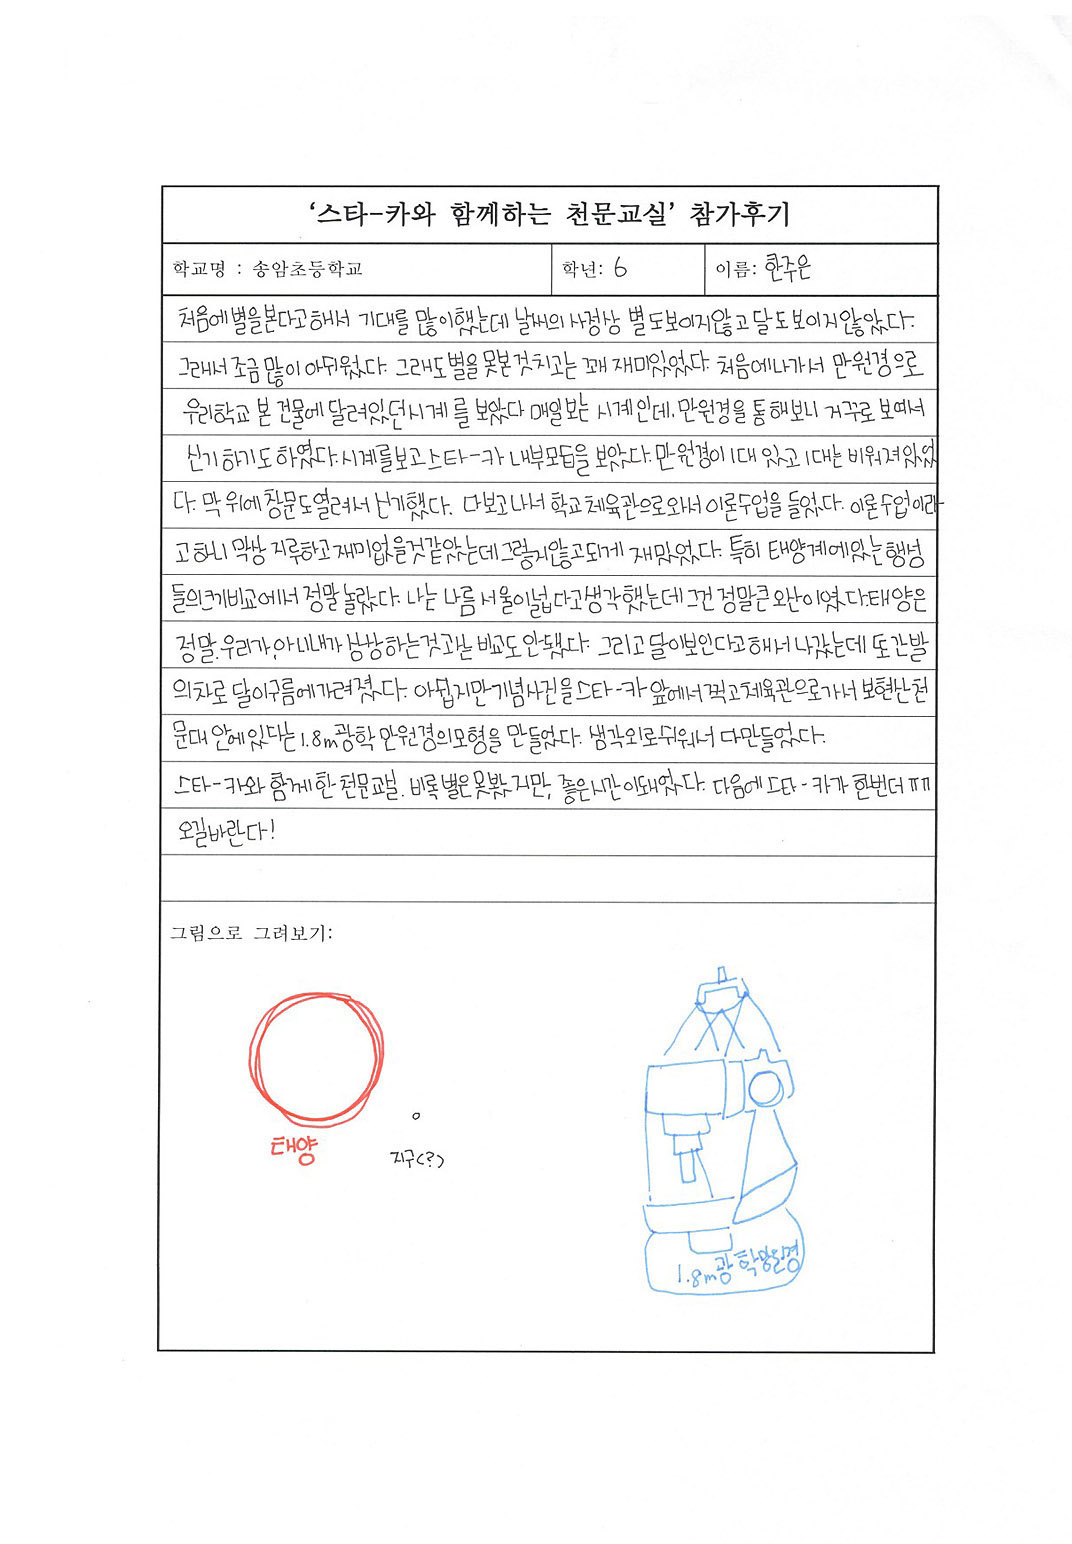 '스타-카와 함께하는 천문교실' 참가후기
학교명 : 송암초등학교
학년: 6
이름: 한주은
처음에 별을 본다고 해서 기대를 많이 했는데 날씨의 사정상 별도 보이지 않고 달도 보이지 않았다.
그래서 조금 많이 아쉬웠다. 그래도 별을 못본 것 치고는 꽤 재미있었다. 처음에 나가서 만원경으로
우리학교 본 건물에 달려있던 시계를 보았다 매일 보는 시계인데, 만원경을 통해보니 거꾸로 보여서
신기하기도 하였다. 시계를 보고 스타-카 내부모듭을 보았다. 만원경이 1대 있고 1대는 비워져 있었
다. 막 위에 창문도 열려서 신기했다. 다보고 나서 학교 체육관으로 와서 이론수업을 들었다. 이론수업이라
고 하니 막상 지루하고 재미없을것 같았는데 그렇지 않고 되게 재밌었다. 특히 태양계에 있는 행성
들의 크기비교에서 정말 놀랐다. 나는 나름 서울이 넓다고 생각했는데 그건 정말 큰 오산이였다. 태양은
정말. 우리가, 아니 내가 상상하는 것과는 비교도 안됐다. 그리고 달이 보인다고 해서 나갔는데 또 간발
의 차로 달이 구름에 가려졌다. 아쉽지만 기념사진을 스타-카 앞에서 찍고 체육관으로 가서 보현산 천
문대 안에 있다는 1.8m 광학 만원경의 모형을 만들었다. 생각외로 쉬워서 다만들었다.
스타-카와 함께 한 천문교실. 비록 별은 못봤지만, 좋은 시간이 돼었다. 다음에 스타-카가 한번더 ㅠㅠ
오길바란다!
그림으로 그려보기:
태양
지구(?)
1.8m광학망원경